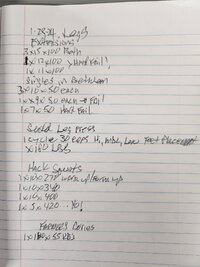 1-28-24 Legs
Extensions
3x15x100 Both
1x12x100 > Hard Fail!
1x11x100
Singles in Between
3x10x50 each
1x9x50 each → Fail
1x7x50 Hard Fail
Seated Leg Press
1 cycle 30 reps Hi, Mid, Low Feet Placement
x180 LBS
Hack Squats
1x10x270 warm up/form up
1x10x360
1x10x400
1x5x420 .. Yo!
Farmers Carries
LBS